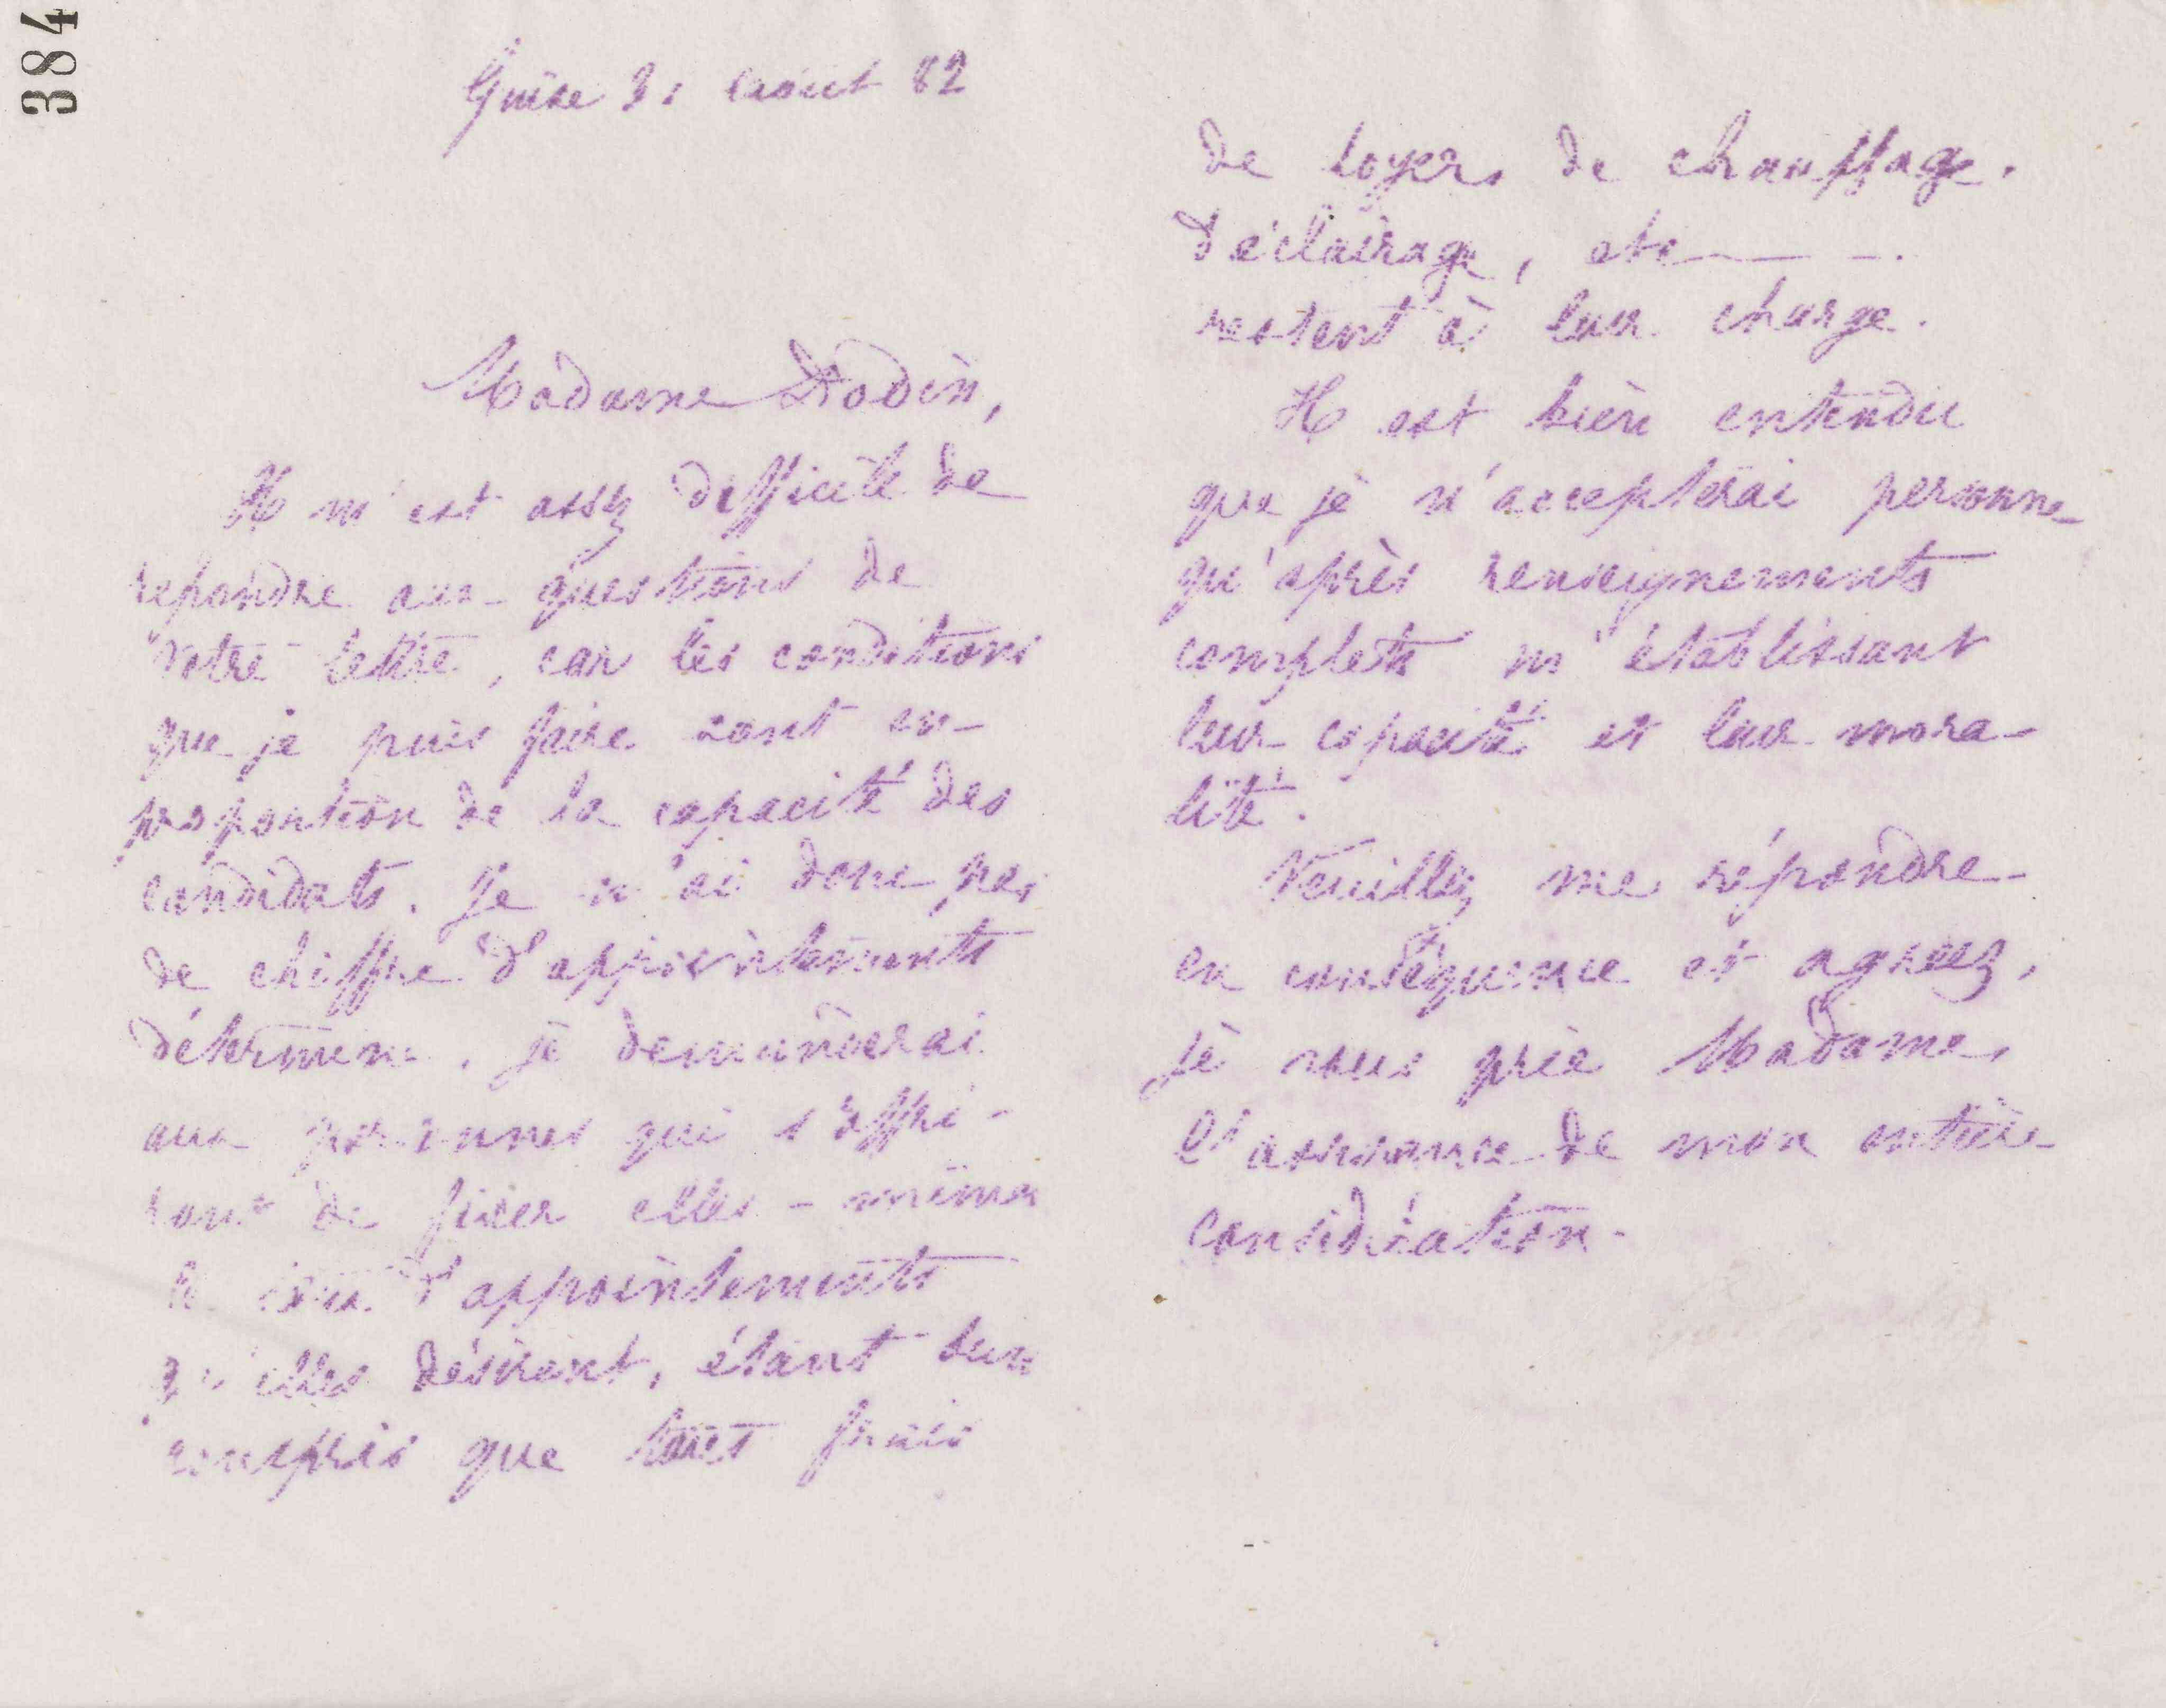 384
Guise 31 Août 82
Madame Dodin,
Il m'est assez difficile de
répondre aux questions de
votre lettre, car les conditions
que je puis faire sont en
proportion de la capacité des
candidats. Je n'ai donc pas
de chiffre d'appointements
déterminé. je demanderai
aux personnes qui s'offri-
ront de fixer elles-mêmes
le d'appointements
qu'elles désirent, étant bien
compris que tout frais
de loyers de chauffage.
d'éclairage, etc
restent à leur charge.
Il est bien entendu
que je n'accepterai personne
qu'après renseignements
complets m'établissant
leur capacité et leur mora-
lité.
Veuillez me répondre
en conséquence et agréez,
je vous prie Madame,
l'assurance de mon entière
considération.